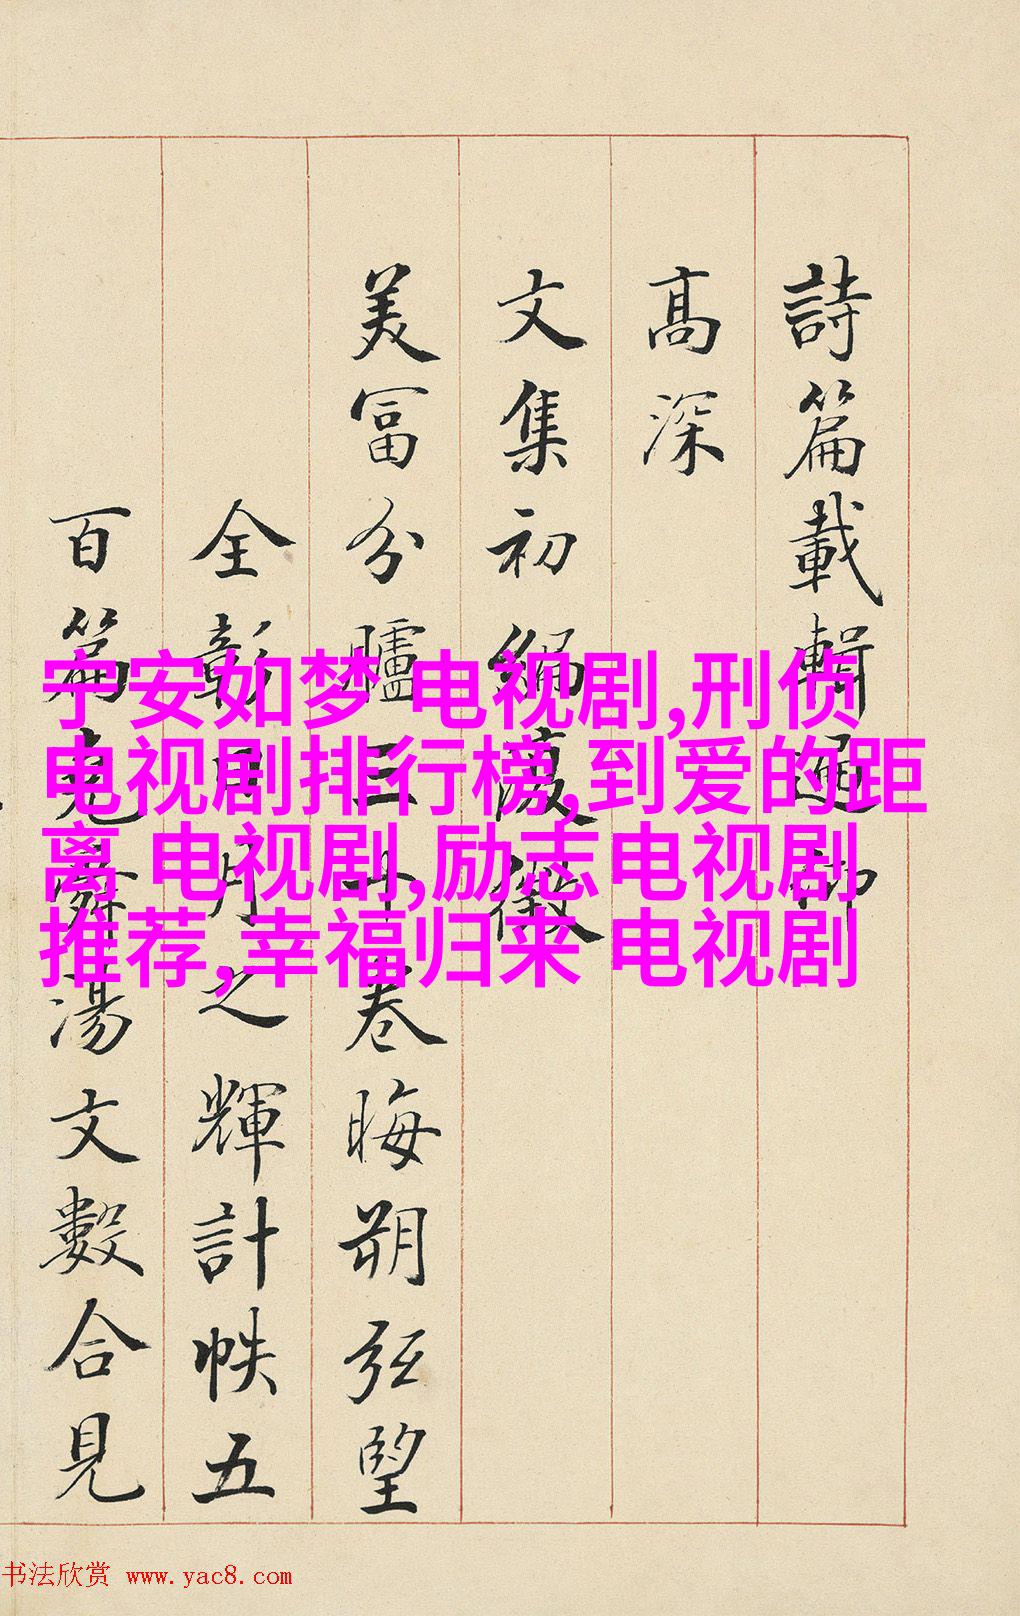 詩篇載輯通行
高深
文集初編復徵
美富分臚三十卷晦朔弦望
全彰日月之輝計帙五
百篇堯舜湯文數合見
宁安如梦 电视剧,刑侦
电视剧排行榜,到爱的距
离 电视剧,励志电视剧
推荐,幸福归来 电视剧
书法欣赏 www.yac8.com